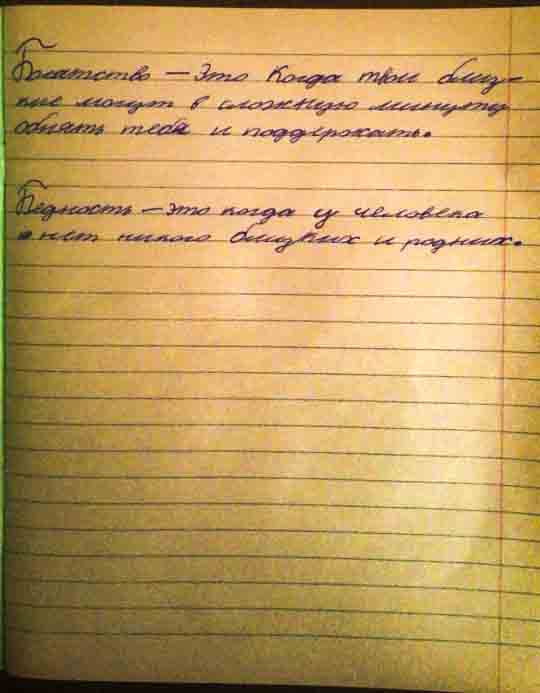 Богатство — Это Когда твои близ-
кие могут в сложную минуту
обнять тебя и поддержать.
Бедность — это когда у человека
нет никого близких и родних.